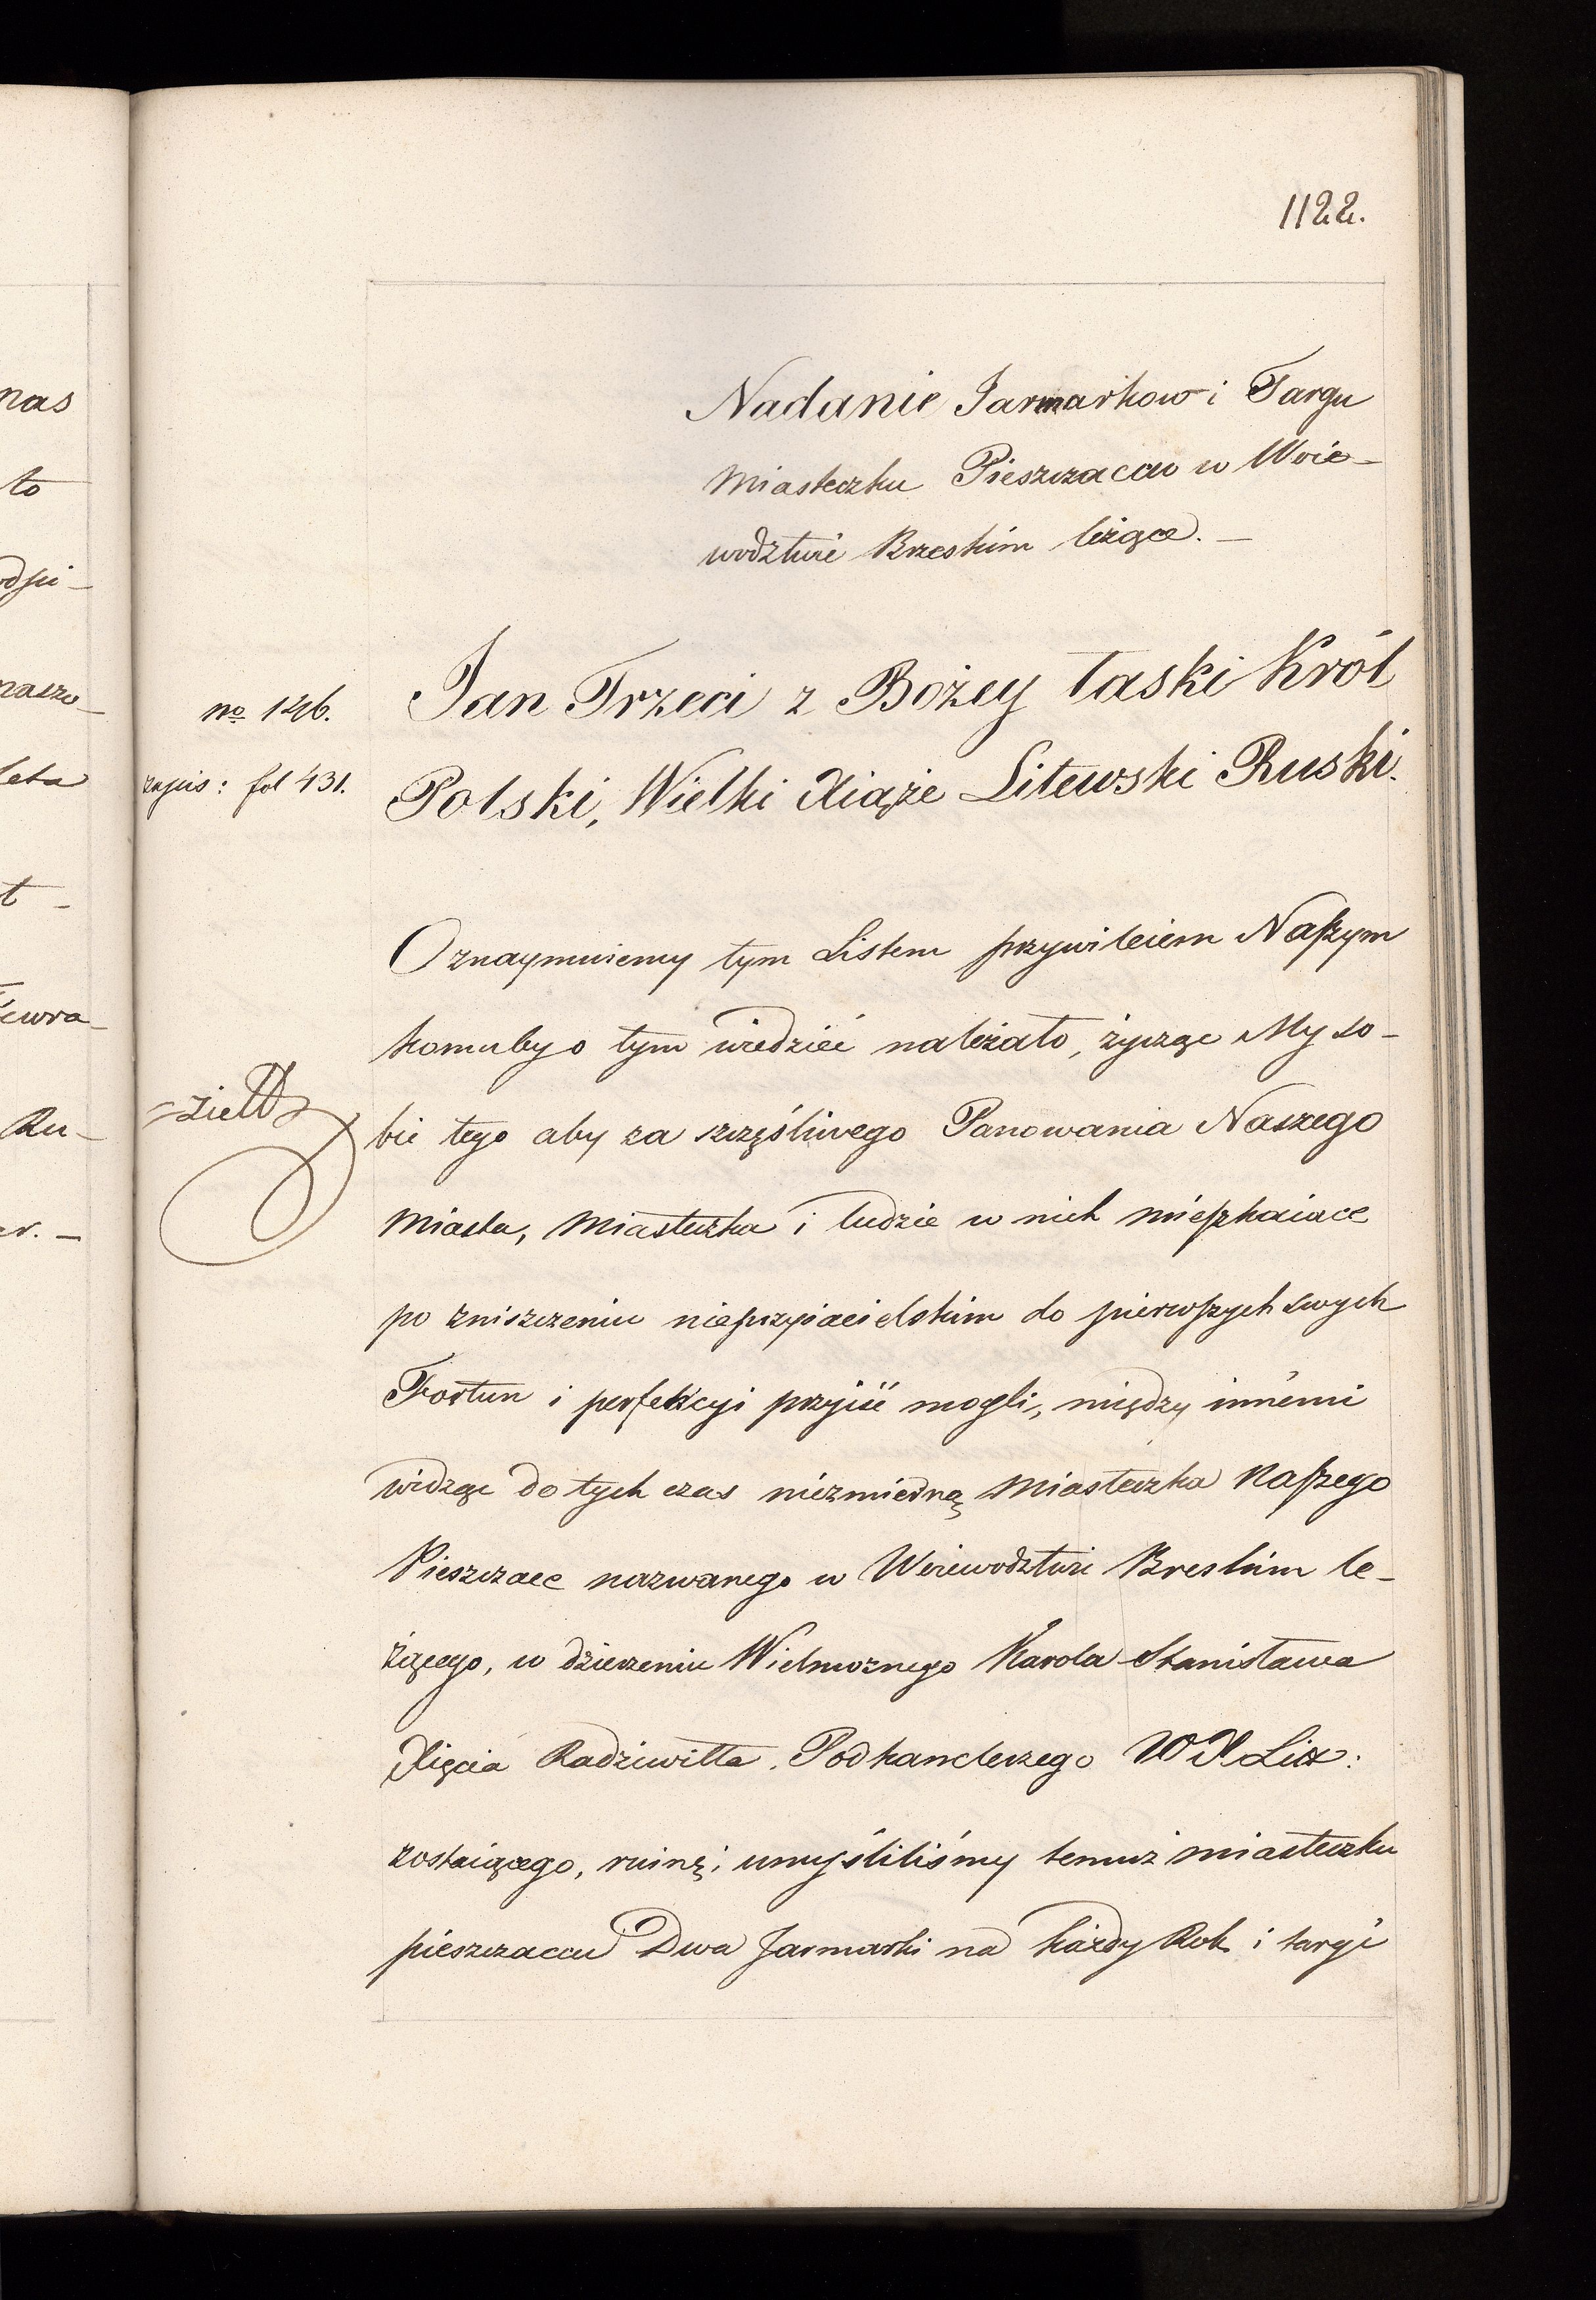 1122.
nas
to
Nadanie Jarmarkow i Targu
Miasteczku Pieszczacow w Woie-
wodztwie Brzeskim leżące. -
Jan Trzeci z Bożey łaski Król
no 126.
Polski, Wielki Xiąże Litewski Ruski.
fol 431.
Oznaymuiemy tym Listem przywileiem Naszym
komuby o tym wiedzieć należało, życząc My so-
bie tego aby za szczęśliwego Panowania Naszego
Miasta, Miasteczka i ludzie w nich mieszkaiace
po zniszczeniu nieprzyiacielskim do pierwszych swych
Fortun i perfekcyi przyiść mogli, między innemi
widząc do tych czas niezmierną Miasteczka Naszego
Pieszczace nazwanego w Woiewodztwie Breskim le-
żącego, w dzierzeniu Wielmoznego Karola Stanisława
Xięcia Radziwiłła. Podkanclerzego W X Litt:
zostaiącego, ruinę; umyśliliśmy temuż miasteczku
pieszczacow Dwa Jarmarki na każdy Rok i targi